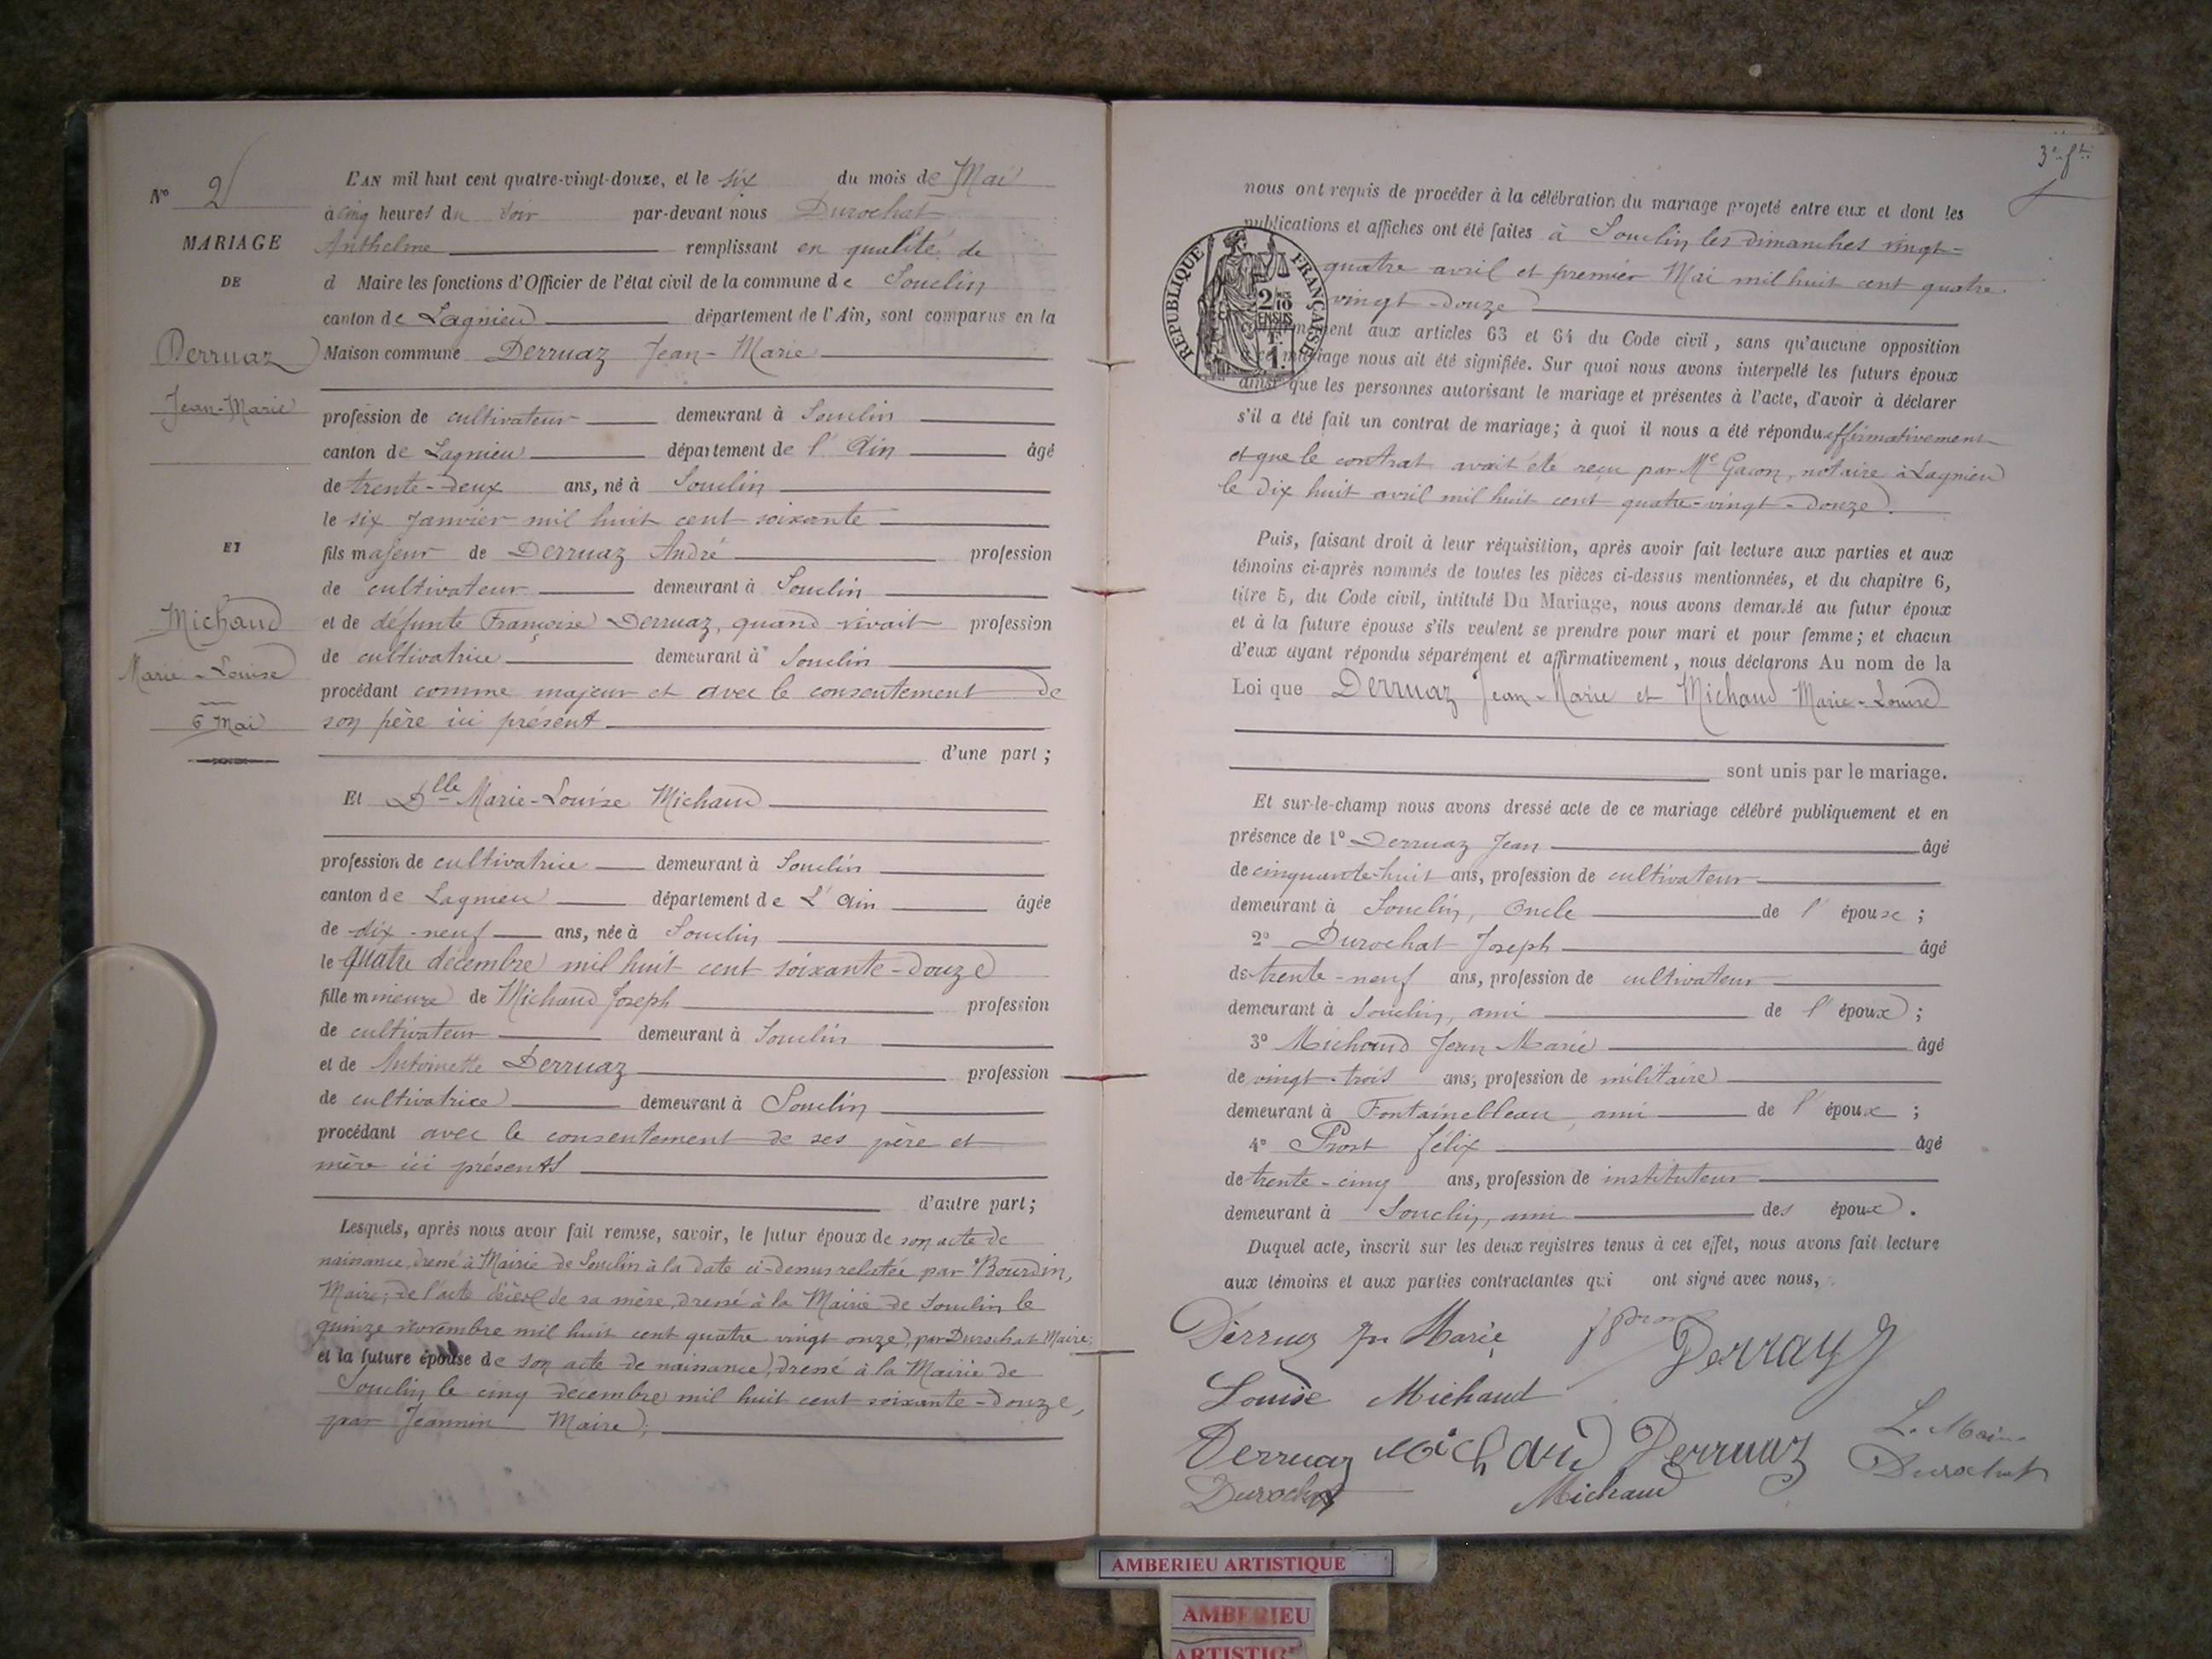 N° 2
MARIAGE
DE
Derruaz
Jean-Marie
ET
Michaud
Marie-Louise
6 Mai
L'AN mil huit cent quatre-vingt-douze, et le six du mois de Mai
à cinq heures du soir par-devant nous Durochat
Anthelme remplissant en qualité de
d Maire les fonctions d'Officier de l'état civil de la commune de Souclin
canton de Lagnieu département de l'Ain, sont comparus en la
Maison commune Derruaz Jean-Marie
profession de cultivateur demeurant à Souclin
canton de Lagnieu département de l'Ain âgé
de trente-deux ans, né à Souclin
le six Janvier mil huit cent soixante
fils majeur de Derruaz André profession
de cultivateur demeurant à Souclin
et de défunte Françoise Derruaz, quand vivait profession
de cultivatrice demeurant à Souclin
procédant comme majeur et avec le consentement de
son père ici présent
d'une part ;
Et Dlle Marie-Louise Michaud
profession de cultivatrice demeurant à Souclin
canton de Lagnieu département de L'Ain âgée
de dix-neuf ans, née à Souclin
le quatre décembre mil huit cent soixante-douze
fille mineure de Michaud Joseph profession
de cultivateur demeurant à Souclin
et de Antoinette Derruaz profession
de cultivatrice demeurant à Souclin
procédant avec le consentement de ses père et
mère ici présents
d'autre part ;
Lesquels, après nous avoir fait remise, savoir, le futur époux de son acte de
naissance, dressé à Mairie de Souclin à la date ci-dessus relatée par Bourdin,
Maire; de l'acte de sa mère, dressé à la Mairie de Souclin le
quinze novembre mil huit cent quatre vingt onze, par Durochat Maire;
et la future épouse de son acte de naissance, dressé à la Mairie de
Souclin le cinq décembre mil huit cent soixante-douze,
par Jeannin Maire;
nous ont requis de procéder à la célébration du mariage projeté entre eux et dont les
publications et affiches ont été faites à Souclin les dimanches vingt-
quatre avril et premier Mai mil huit cent quatre
vingt-douze
RÉPUBLIQUE FRANÇAISE
2/10 EN SUS
1 F.
aux articles 63 et 64 du Code civil, sans qu'aucune opposition
à ce mariage nous ait été signifiée. Sur quoi nous avons interpellé les futurs époux
ainsi que les personnes autorisant le mariage et présentes à l'acte, d'avoir à déclarer
s'il a été fait un contrat de mariage; à quoi il nous a été répondu affirmativement
et que le contrat avait été reçu par Me Gacon, notaire à Lagnieu
le dix huit avril mil huit cent quatre-vingt-douze.
Puis, faisant droit à leur réquisition, après avoir fait lecture aux parties et aux
témoins ci-après nommés de toutes les pièces ci-dessus mentionnées, et du chapitre 6,
titre 5, du Code civil, intitulé Du Mariage, nous avons demandé au futur époux
et à la future épouse s'ils veulent se prendre pour mari et pour femme ; et chacun
d'eux ayant répondu séparément et affirmativement, nous déclarons Au nom de la
Loi que Derruaz Jean-Marie et Michaud Marie-Louise
sont unis par le mariage.
Et sur-le-champ nous avons dressé acte de ce mariage célébré publiquement et en
présence de 1° Derruaz Jean âgé
de cinquante-huit ans, profession de cultivateur
demeurant à Souclin, oncle de l'épouse ;
2° Durochat Joseph âgé
de trente-neuf ans, profession de cultivateur
demeurant à Souclin, ami de l'époux ;
3° Michaud Jean Marie âgé
de vingt-trois ans, profession de militaire
demeurant à Fontainebleau, ami de l'époux ;
4° Prost félix âgé
de trente-cinq ans, profession de instituteur
demeurant à Souclin, ami des époux.
Duquel acte, inscrit sur les deux registres tenus à cet effet, nous avons fait lecture
aux témoins et aux parties contractantes qui ont signé avec nous,
Derruaz Jn Marie Derruaz
Louise Michaud
Derruaz Michaud Derruaz L. Maire
Durochat Michaud Durochat
AMBERIEU ARTISTIQUE
AMBERIEU
ARTISTIQ